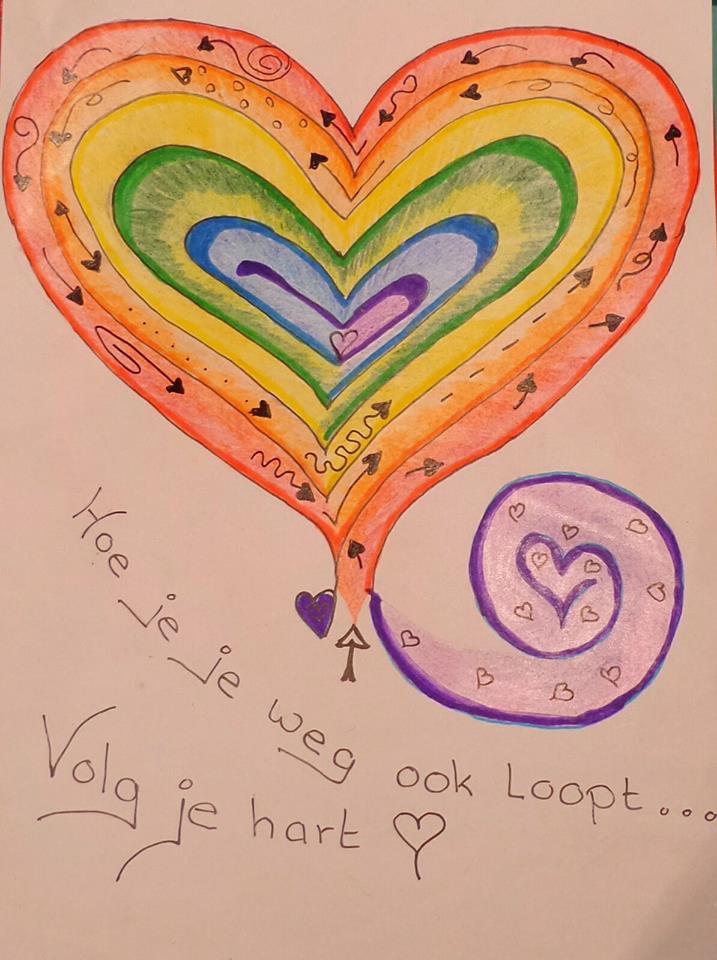 Hoe je je weg ook Loopt...
Volg je hart